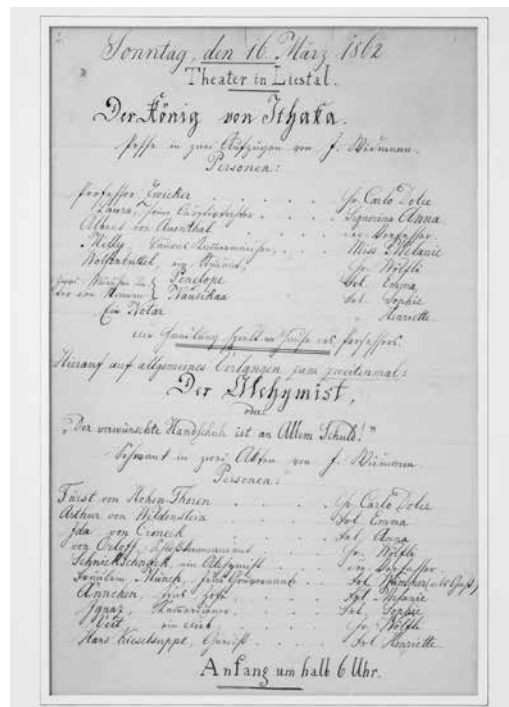 Sonntag, den 16. März 1862
Theater in Liestal.
Der König von Ithaka.
Posse in zwei Aufzügen von J. Widmann.
Personen:
Professor Zwicker . . . . . Hr. Carlo Dolce
Laura, seine . . . . Signorina Anna
Albert von Auenthal . . . . der Verfasser
Melly, Lauras Kammermädchen, . . . Miss Melanie
ein Student, . . . Hr. Wölfli
Penelope . . . Frl. Emma
Nausikaa . . . Frl. Sophie
Ein Notar . . . " Henriette.
Die Handlung spielt im Hause des Professors.
Hierauf auf allgemeines Verlangen zum zweitenmal:
Der Alchymist,
oder
„Der verwünschte Handschuh ist an Allem Schuld!"
Schwank in zwei Akten von J. Widmann
Personen:
Fürst von Hohen-Thoren . . . . Hr. Carlo Dolce
Arthur von Wildenstein . . . . Frl. Emma
Ida von Croneck . . . . Frl. Anna
von Orloff, . . . Hr. Wölfli
Schnickschnack, ein Alchymist . . . der Verfasser
Fräulein Münch, seine Gouvernante . . Frl. (als Gast)
Ännchen, . . . . Frl. Melanie
Ignaz, Kammerdiener . . . . Frl. Sophie
Veit . . . . Hr. Wölfli
Hans Kieselsuppe, . . . . Frl. Henriette.
Anfang um halb 6 Uhr.